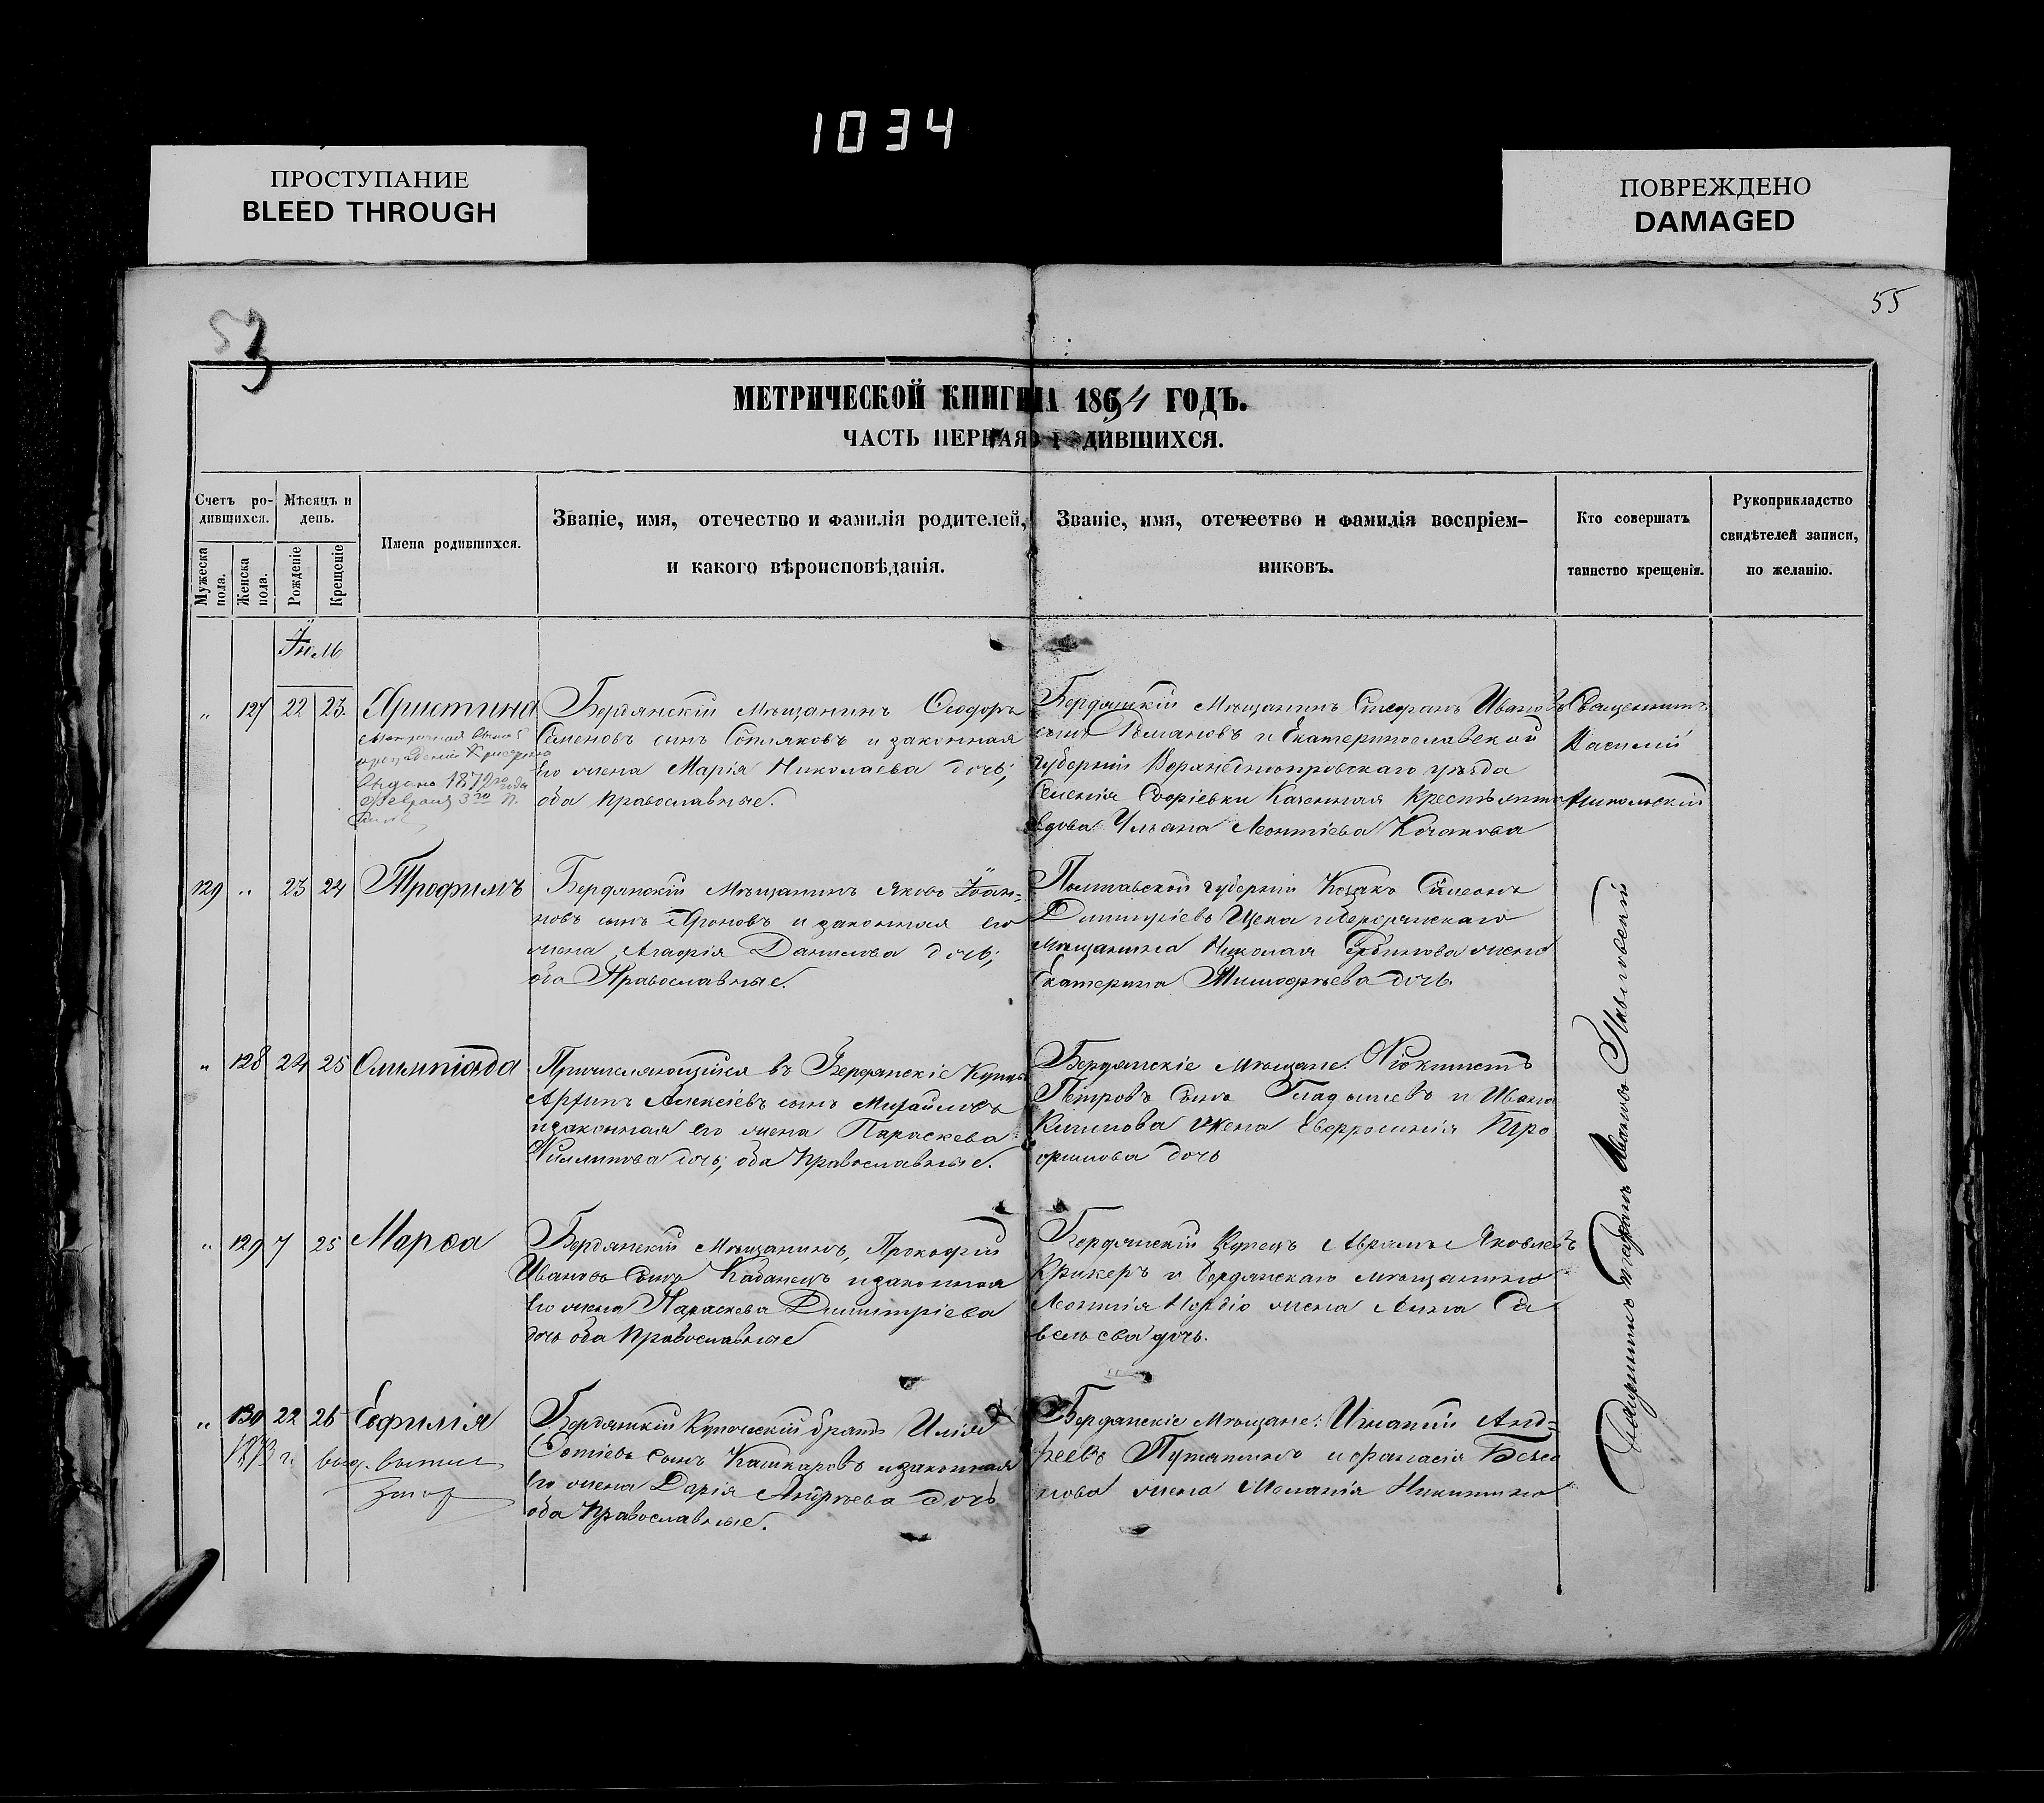 1034
ПРОСТУПАНИЕ
BLEED THROUGH
ПОВРЕЖДЕНО
DAMAGED
55
МЕТРИЧЕСКОЙ КНИГИ НА 1864 ГОДЪ.
ЧАСТЬ ПЕРВАЯ О РОДИВШИХСЯ.
Счетъ ро-
дившихся.
Мужеска пола.
Женска пола.
Мѣсяцъ и
день.
Рожденіе
Крещеніе
Имена родившихся.
Званіе, имя, отечество и фамилія родителей,
и какого вѣроисповѣданія.
Званіе, имя, отечество и фамилія воспріем-
никовъ.
Кто совершатъ
таинство крещенія.
Рукоприкладство
свидѣтелей записи,
по желанію.
" 127 22 23. Христина
1872 года
Бердянскій Мѣщанинъ Ѳеодоръ
Семеновъ сынъ Сопляковъ и законная
его жена Марія Николаева дочь;
оба православные.
Бердянскій Мѣщанинъ Стефанъ Ивановъ
сынъ и Екатеринославской
губерніи Верхнеднѣпровскаго уѣзда
Селенія Софіевки Казенная Крестьянка
вдова Ульяна Леонтіева Качанова
Священникъ
Василій
Никольскій
129 " 23 24 Трофимъ
Бердянскій Мѣщанинъ Яковъ Іоан-
новъ сынъ и законная его
жена Агафія Данилова дочь;
оба Православные.
Полтавской губерніи Козакъ Симеонъ
Димитріевъ Щека и бердянскаго
мѣщанина Николая жена
Екатерина Тимофѣева дочь.
" 128 24 25 Олимпіада
Причисляющійся въ Бердянскіе Купцы
Архипъ Алексіевъ сынъ Михайловъ
и законная его жена Параскева
Филиппова дочь; оба Православные.
Бердянскіе Мѣщане: Ѳіоктистъ
Петровъ сынъ Гладышевъ и Ивана
жена Евфросинія Тро
фимова дочь
" 129 7 25 Марѳа
Бердянскій Мѣщанинъ, Прокофій
Ивановъ сынъ Кабанецъ и законная
его жена Параскева Димитріева
дочь оба Православные
Бердянскій Купецъ Аврамъ Яковлевъ
Крикеръ и бердянскаго мѣщанина
Леонтія жена Анна Са
вельева дочь.
" 130 22 26 Евфимія
1873 г.
Бердянскій Купеческій братъ Илія
Фотіевъ сынъ Кашкаровъ и законная
его жена Дарія Андреева дочь
оба Православные.
Бердянскіе Мѣщане: Игнатій Анд-
реевъ Путятинъ и Афанасія
жена Меланія Никитина
Священникъ Стефанъ Ивановъ Павловскій